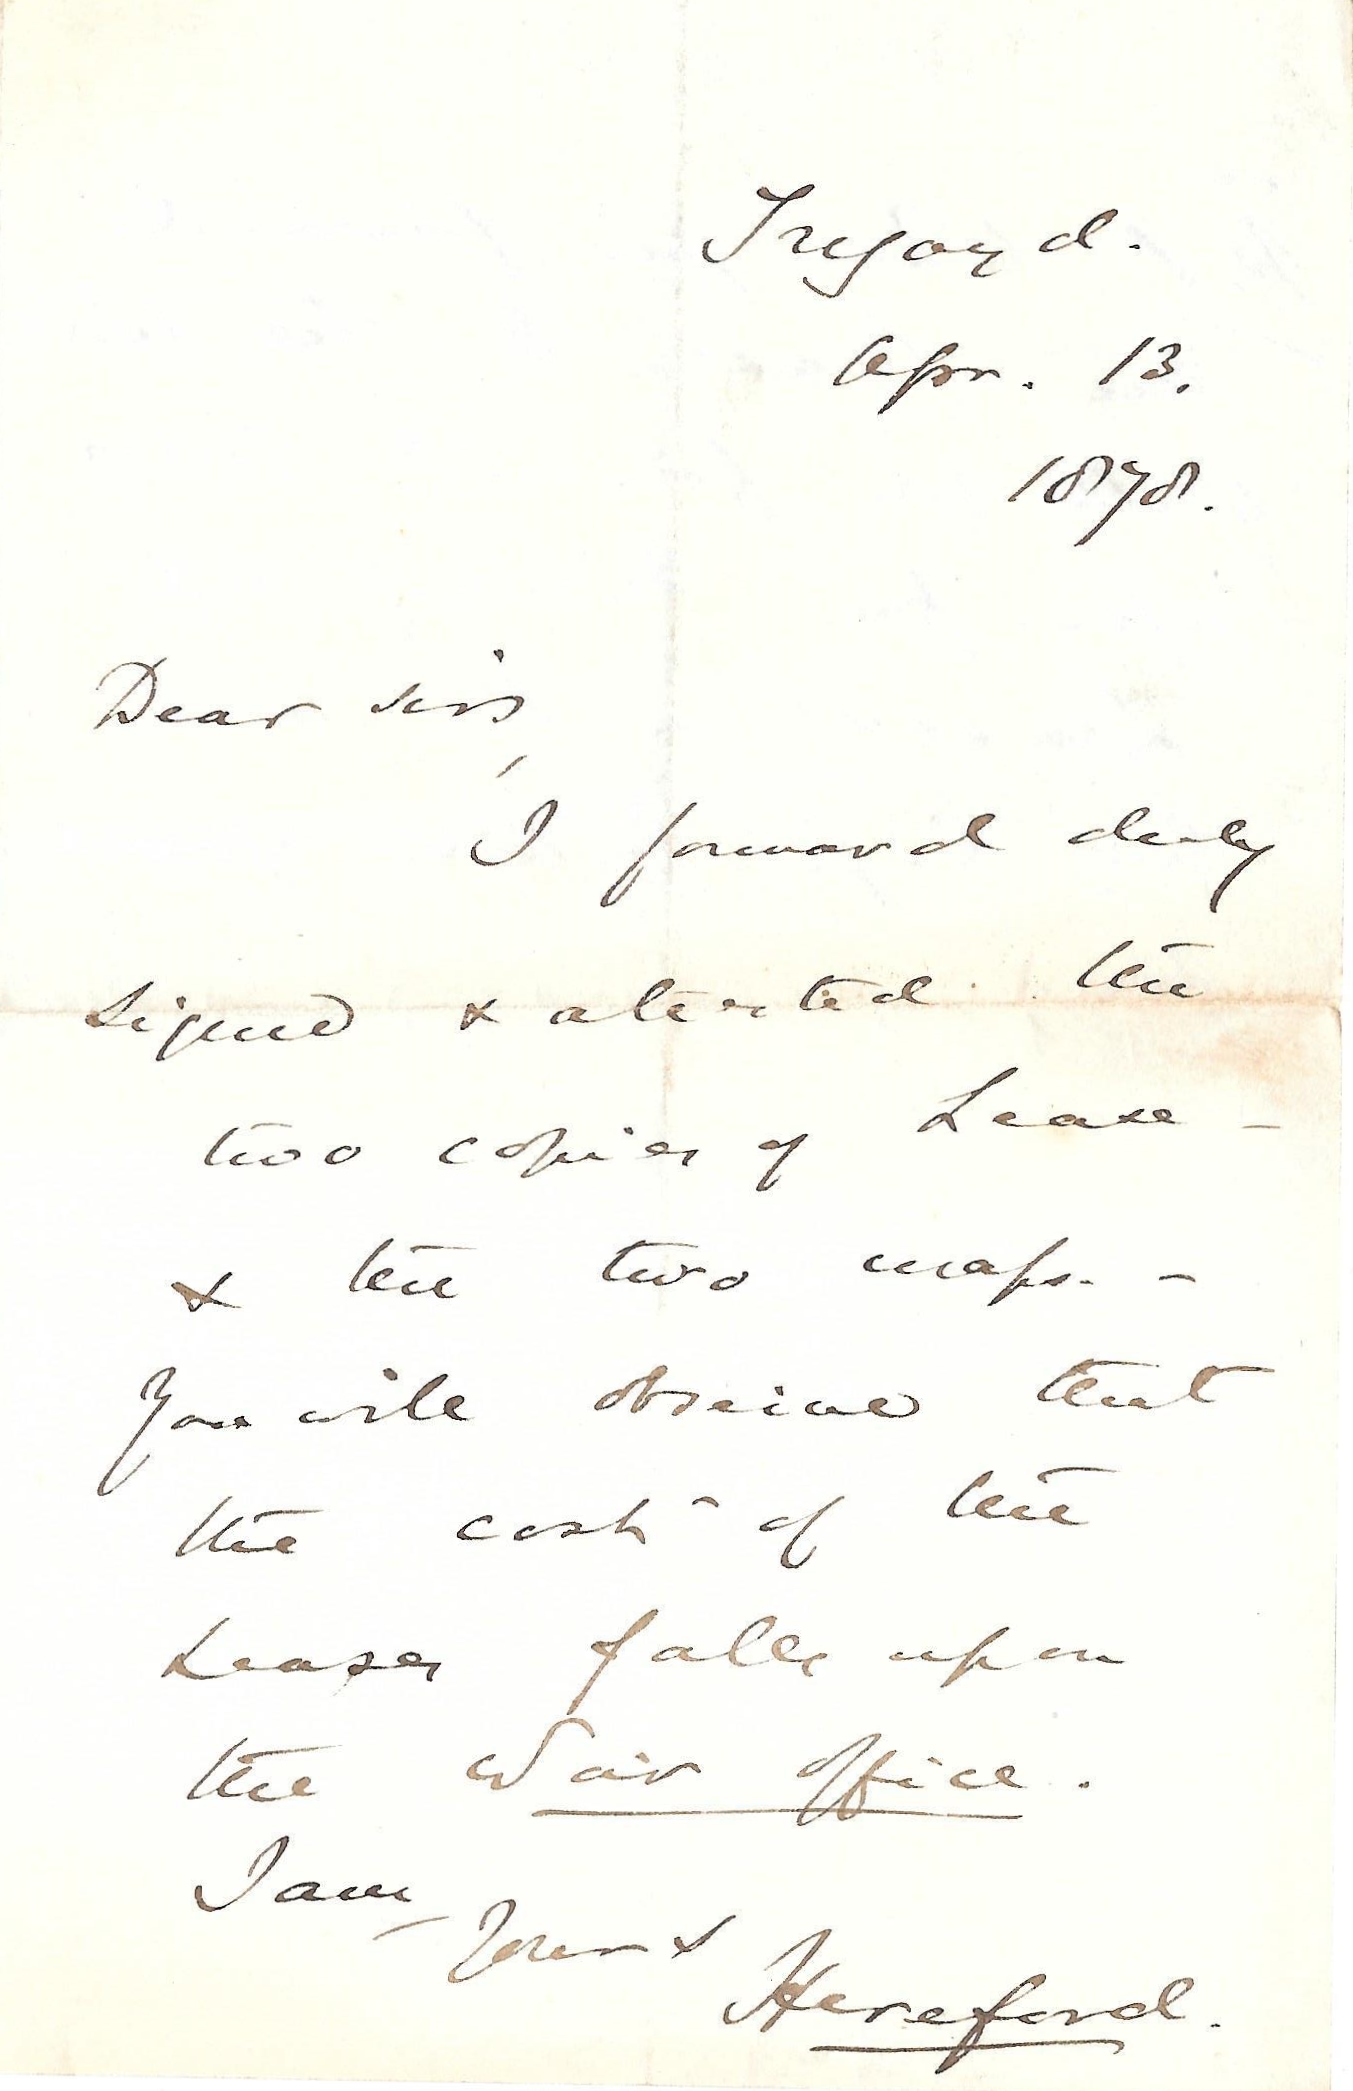 Tregoyd.
Apr. 13.
1878.
Dear sirs,
I forward duly
signed & attested the
two copies of Lease -
& the two maps. -
You will observe that
the cost of the
Leases falls upon
the War office.
I am,
Yours &
Hereford.